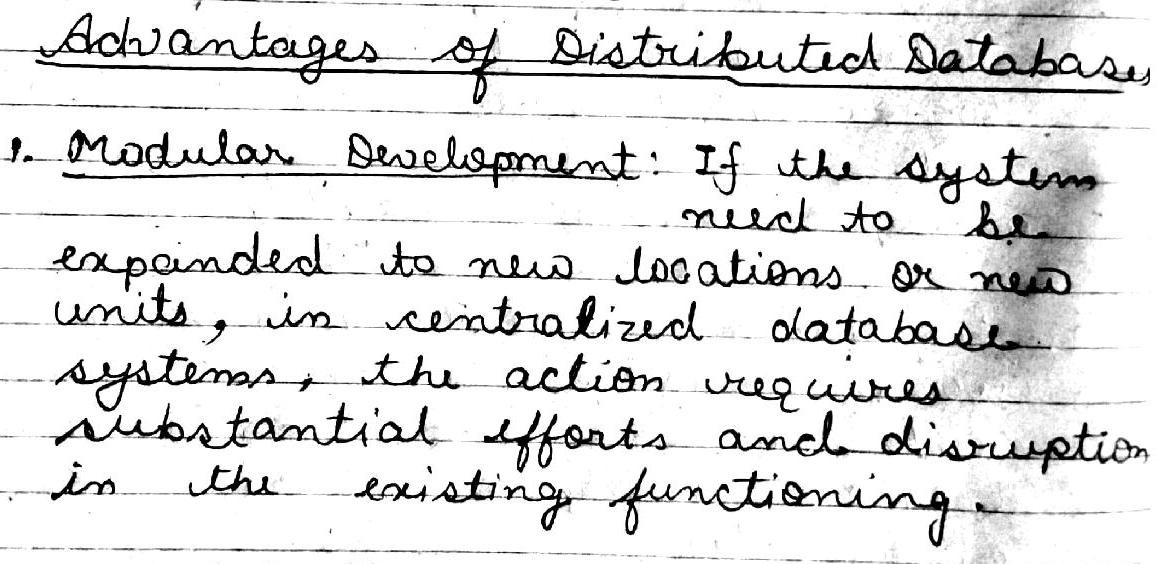 Advantages of Distributed Databases
1. Modular Development: If the system
need to be
expanded to new locations or new
units, in centralized database
systems, the action requires
substantial efforts and disruption
in the existing functioning.